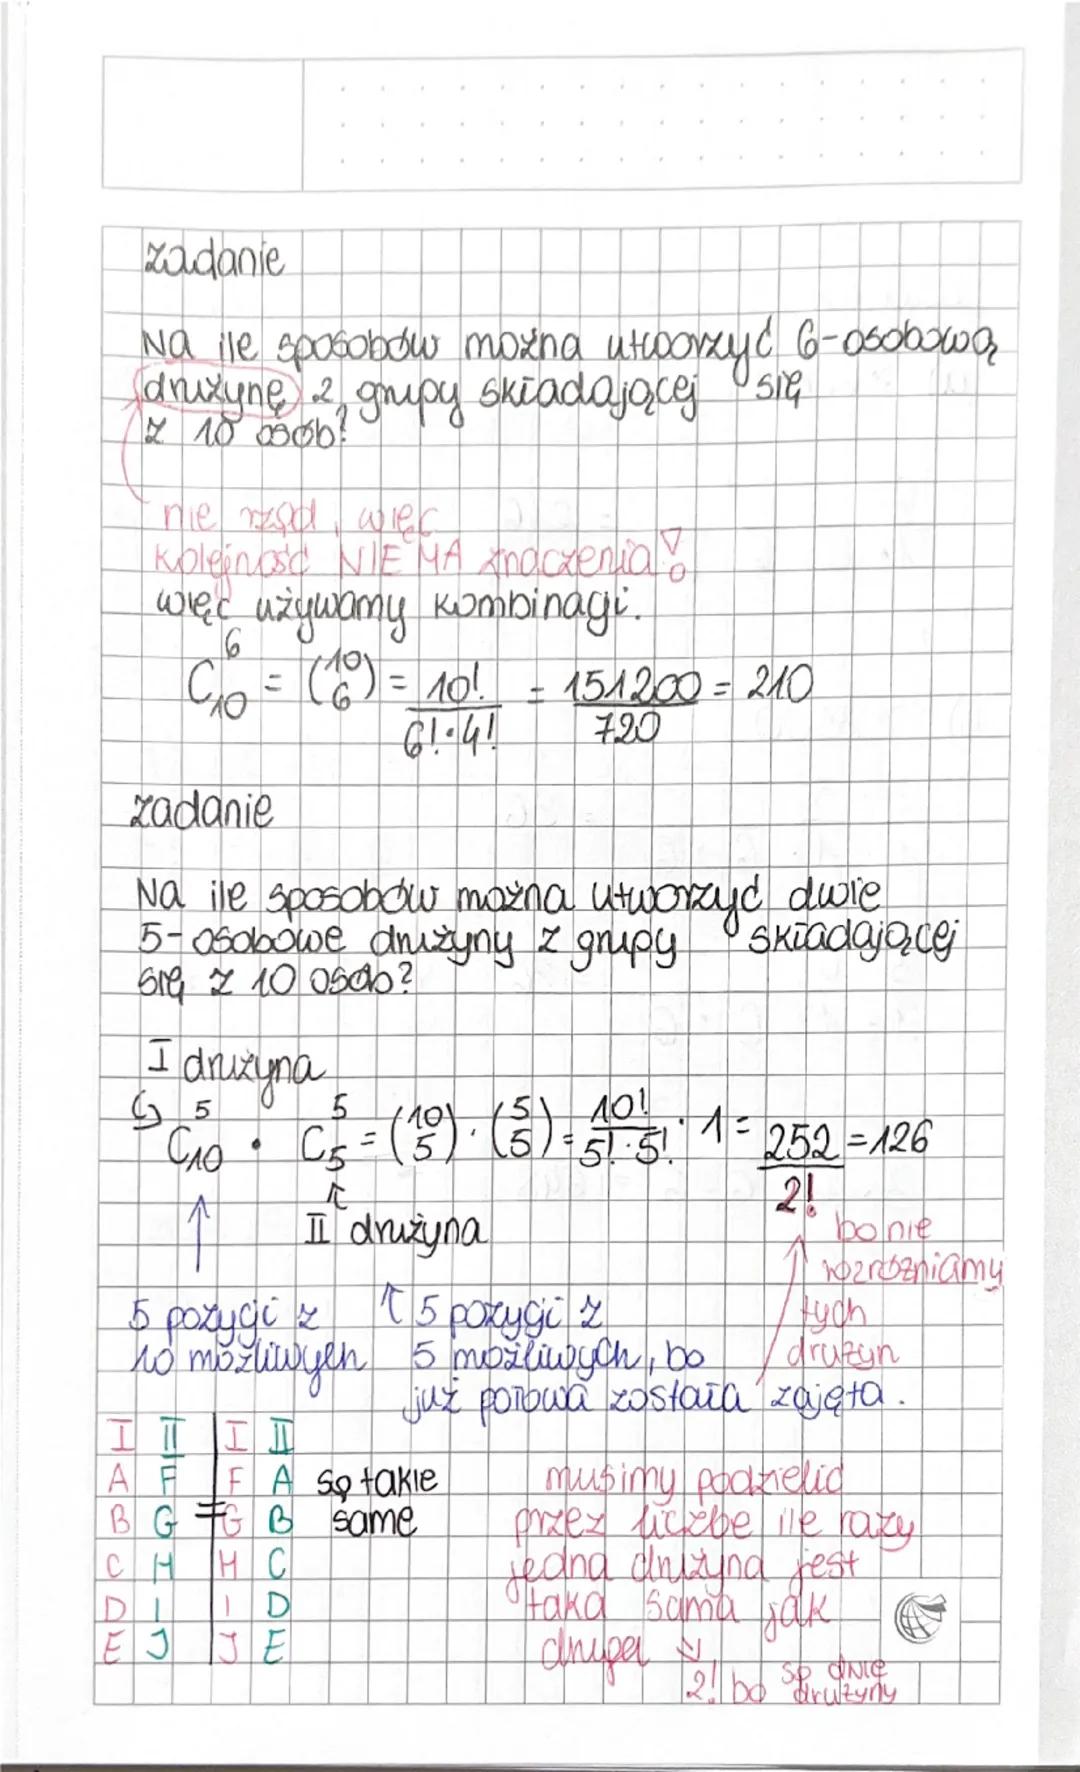 zadanie
Na ile sposobów można utworzyć 6-osobową
drużynę z grupy składającej się
z 10 osób?
nie rząd, więc
kolejność NIE MA znaczenia!
więc używamy kombinacji.
C₁₀⁶ = (10 6) = 10!/(6!·4!) = 151200/720 = 210
zadanie
Na ile sposobów można utworzyć dwie
5-osobowe drużyny z grupy składającej
się z 10 osób?
I drużyna
↳ C₁₀⁵ · C₅⁵ = (10 5) · (5 5) = 10!/(5!·5!) · 1 = 252/2! = 126
↑ II drużyna
bo nie
rozróżniamy
tych
drużyn
5 pozycji z
10 możliwych
↑ 5 pozycji z
5 możliwych, bo
już połowa została zajęta.
I II | I II
A F | F A są takie
B G = G B same
C H | H C
D I | I D
E J | J E
musimy podzielić
przez liczbę ile razy
jedna drużyna jest
taka sama jak
druga ↓
2! bo są dwie
drużyny